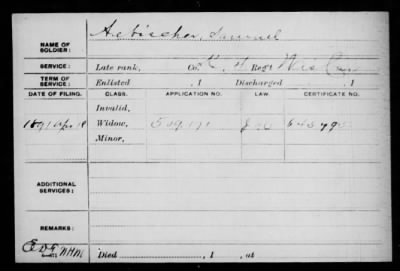 NAME OF SOLDIER: Aebischer, Samuel
SERVICE: Late rank, Co. K, 4 Reg't Wis Cav
TERM OF SERVICE: Enlisted , 1 Discharged , 1
DATE OF FILING. CLASS. APPLICATION NO. LAW. CERTIFICATE NO.
Invalid,
1891 Apr 18 Widow, 509,191
Minor,
ADDITIONAL SERVICES:
REMARKS:
Died , 1 , at